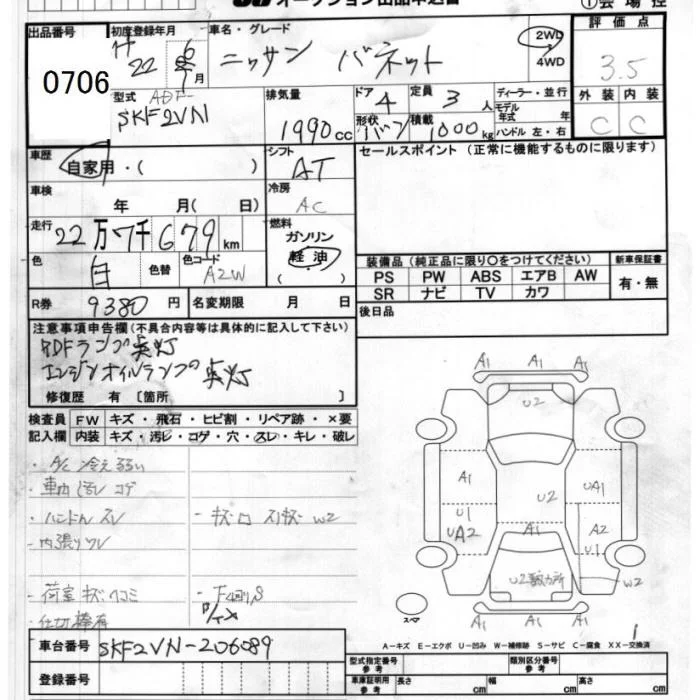 オークション出品申込書
①会場控
出品番号
0706
初度登録年月
22 年 6 月
車名・グレード
ニッサン バネット
2WD
・
4WD
評価点
3.5
型式 ADF-
SKF2VN
排気量
1990 cc
ドア 4
定員 3 人
形状 バン
積載 1000 kg
ディーラー・並行
モデル年式 年
ハンドル 左・右
外装 内装
C C
車歴
自家用・( )
シフト
AT
セールスポイント (正常に機能するものに限ります)
車検
年 月( 日)
冷房
AC
走行
22万7千679 km
燃料
ガソリン
軽油
( )
色
白
色替
色コード
A2W
装備品 (純正品に限り○をつけてください)
新車保証書
PS PW ABS エアB AW
SR ナビ TV カワ
有・無
R券 9380 円
名変期限 月 日
後日品
注意事項申告欄(不具合内容等は具体的に記入して下さい)
PDFランプ点灯
エンジンオイルランプ点灯
修復歴 有 [箇所 ]
検査員
記入欄
FW キズ・飛石・ヒビ割・リペア跡・×要
内装 キズ・汚レ・コゲ・穴・スレ・キレ・破レ
・A/C 冷え弱い
・車内汚レ コゲ
・ハンドルスレ
・内張りワレ
・荷室キズヘコミ
・仕切棒有
・キズ凹 スリキズ W2
・F4回り,S
A1 A1 A1
U2
A1
U1
UA2
U2
A1
UA1
A2
U1
U2数カ所
W2
A1 A1 A1
スペア
A－キズ E－エクボ U－凹み W－補修跡 S－サビ C－腐食 XX－交換済
車台番号
SKF2VN-206089
登録番号
型式指定番号
参考
類別区分番号
参考
車庫証明用
参考
長さ cm
幅 cm
高さ cm